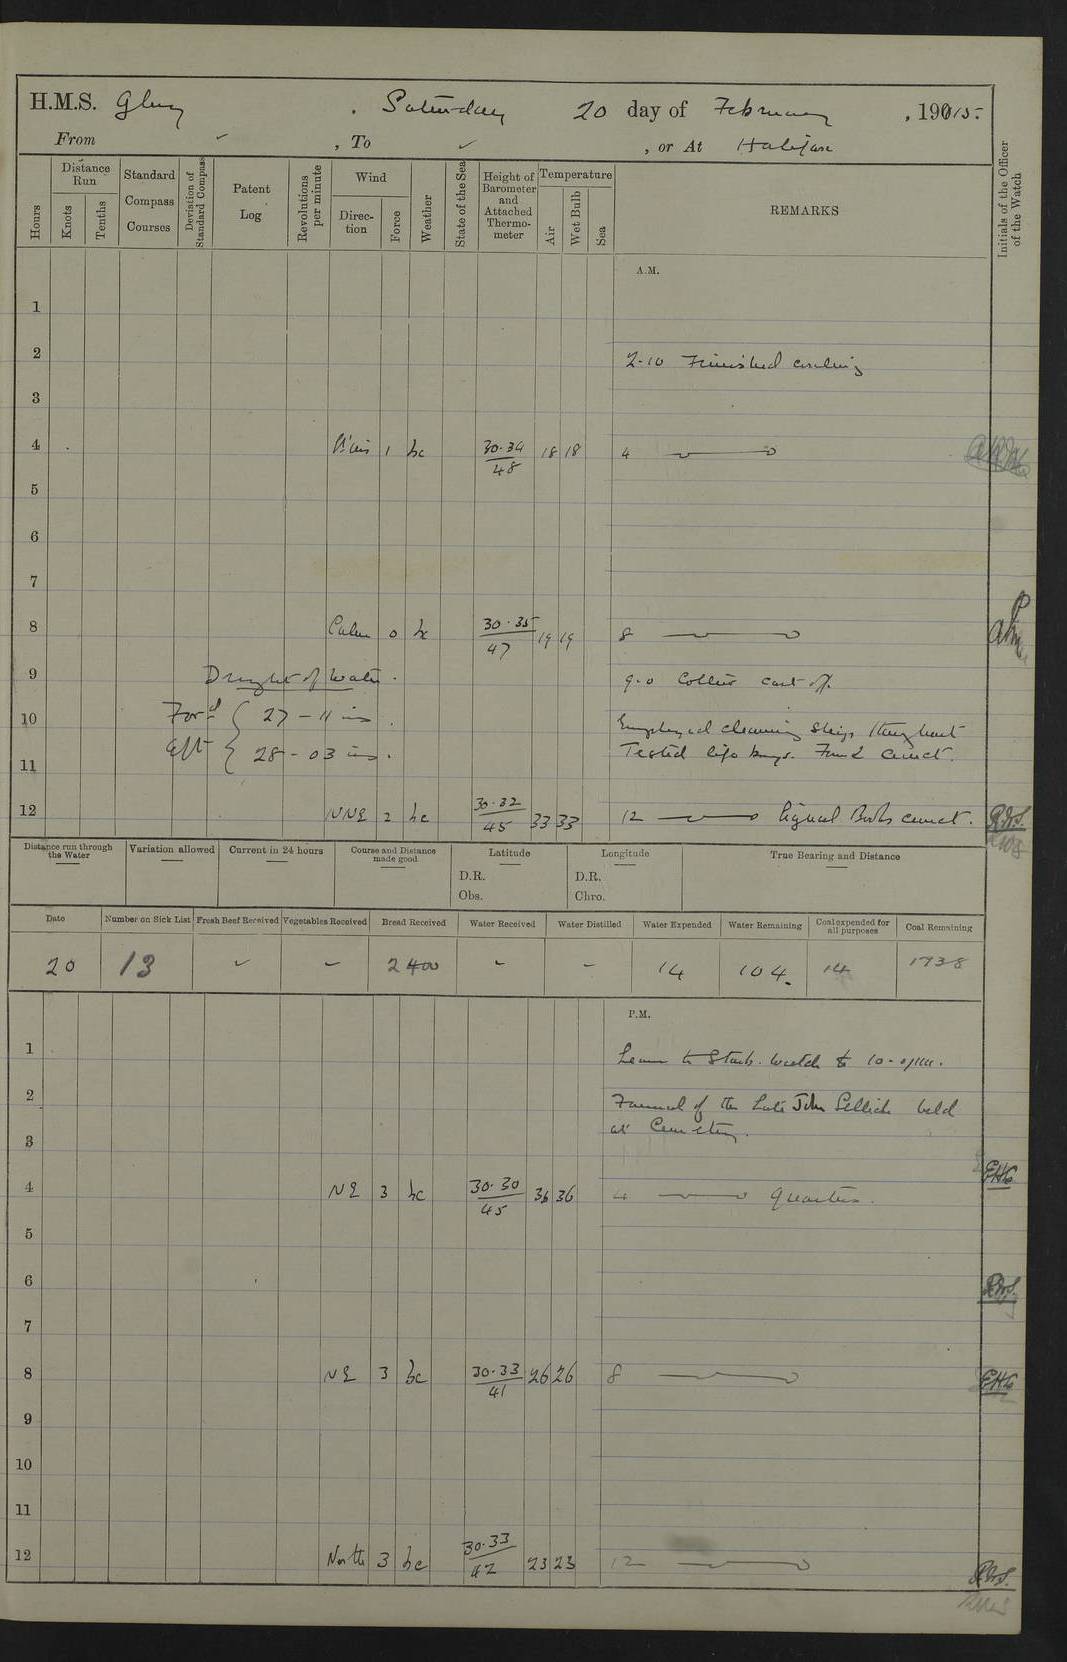 H.M.S. Glory , Saturday 20 day of February , 1915.
From ✓ , To ✓ , or At Halifax
Hours
Distance Run
Knots
Tenths
Standard Compass Courses
Deviation of Standard Compass
Patent Log
Revolutions per minute
Wind
Direction
Force
Weather
State of the Sea
Height of Barometer and Attached Thermometer
Temperature
Air
Wet Bulb
Sea
REMARKS
Initials of the Officer of the Watch
A.M.
1
2 2-10 Finished coaling
3
4 1 bc 30.34/48 18 18 4
5
6
7
8 Calm 0 bc 30.35/47 19 19 8
9 Draught of water. 9.0 Collier cast off.
10 For'd 27 - 11 ins. Employed cleaning ship throughout
Aft 28 - 03 ins. Tested life buoys. Found correct.
11
12 NNE 2 bc 30.32/45 33 33 12 Signal Books correct. R.W.S.
Distance run through the Water
Variation allowed
Current in 24 hours
Course and Distance made good
Latitude
D.R.
Obs.
Longitude
D.R.
Chro.
True Bearing and Distance
Date
Number on Sick List
Fresh Beef Received
Vegetables Received
Bread Received
Water Received
Water Distilled
Water Expended
Water Remaining
Coal expended for all purposes
Coal Remaining
20 13 - - 2400 - - 14 104. 14 1738
P.M.
1 Leave to Starb. watch to 10-0 p.m.
2 Funeral of the Late John held
at Cemetery.
3
4 NE 3 bc 30.30/45 36 36 4 Quarters. EHG
5
6 R.W.S.
7
8 NE 3 bc 30.33/41 26 26 8 EHG
9
10
11
12 North 3 bc 30.33/42 23 23 12 R.W.S.